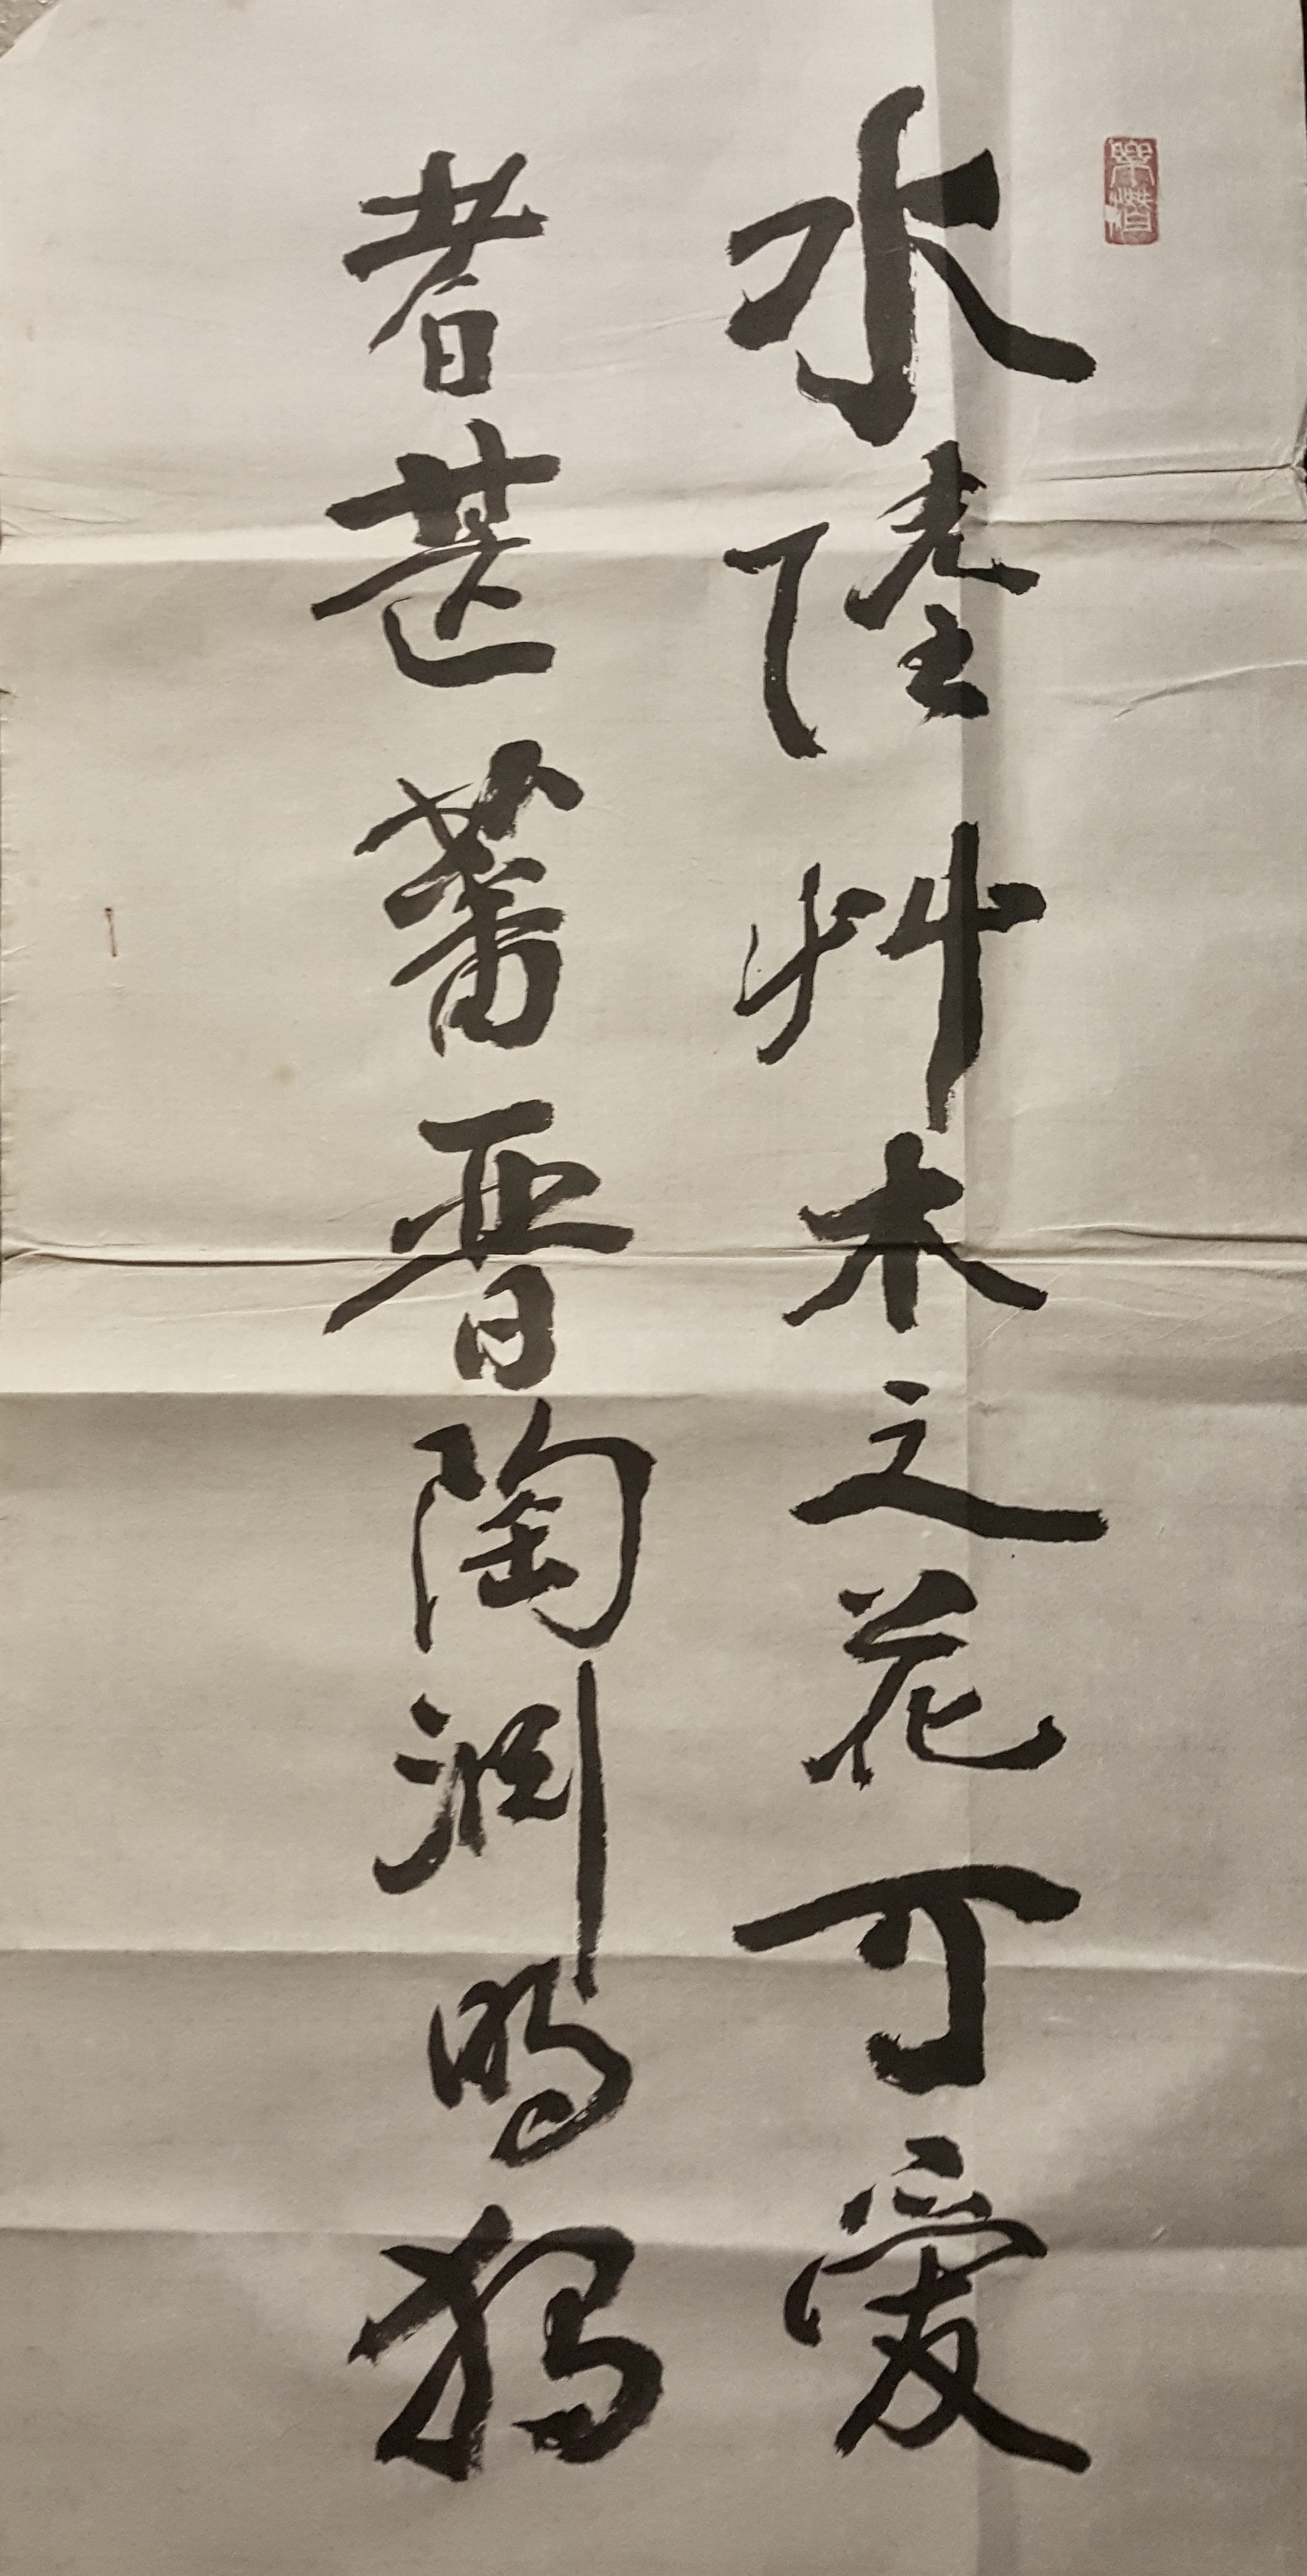 水陸艸木之花可愛
者甚蕃晋陶渊明獨